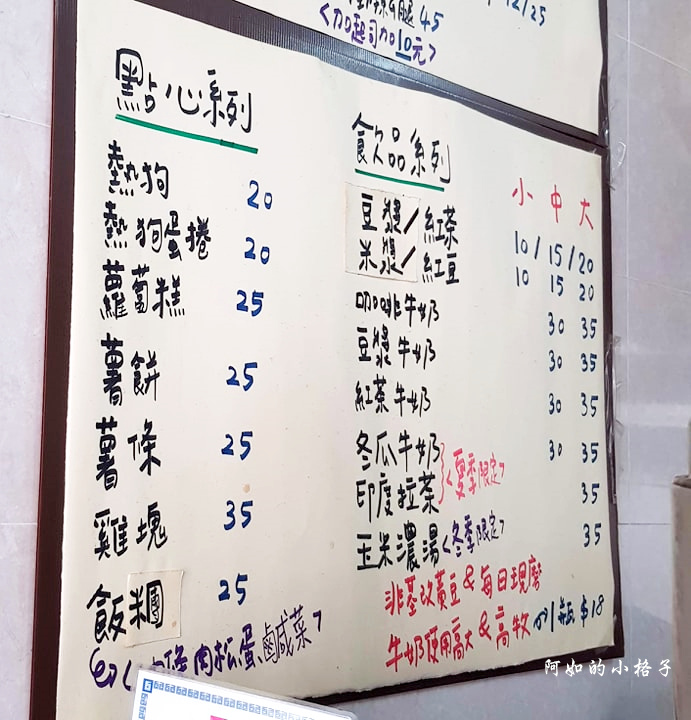 腿 45
12/25
<加起司加10元>
點心系列
熱狗 20
熱狗蛋捲 20
蘿蔔糕 25
薯餅 25
薯條 25
雞塊 35
飯糰 25
肉松蛋鹹菜>
飲品系列
小 中 大
豆漿/紅茶 10/15/20
米漿/紅豆 10 15 20
咖啡牛奶 30 35
豆漿牛奶 30 35
紅茶牛奶 30 35
冬瓜牛奶 30 35
印度拉茶 35
<夏季限定>
玉米濃湯<冬季限定> 35
非基改黃豆&每日現磨
牛奶使用高大&高牧 小瓶$18
阿如的小格子